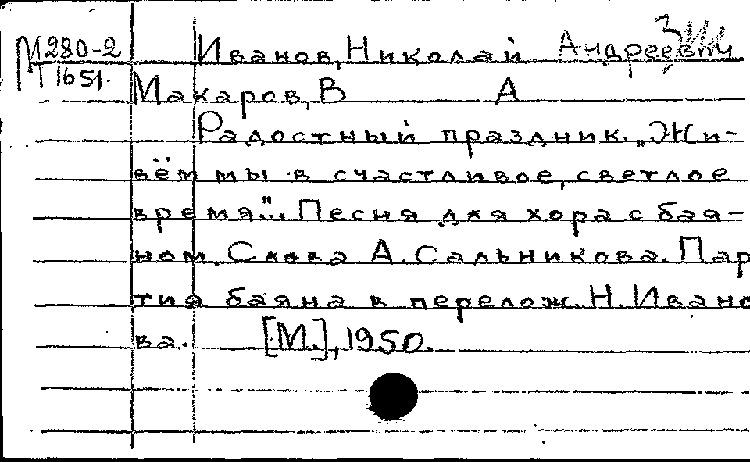 М280-2
Т1651.
Иванов, Николай Андреевич
Макаров, В А
Радостный праздник. „Жи-
вём мы в счастливое, светлое
время"... Песня для хора с бая-
ном. Слова А. Сальникова. Пар
тия баяна в перелож. Н. Ивано
ва. [М.], 1950.